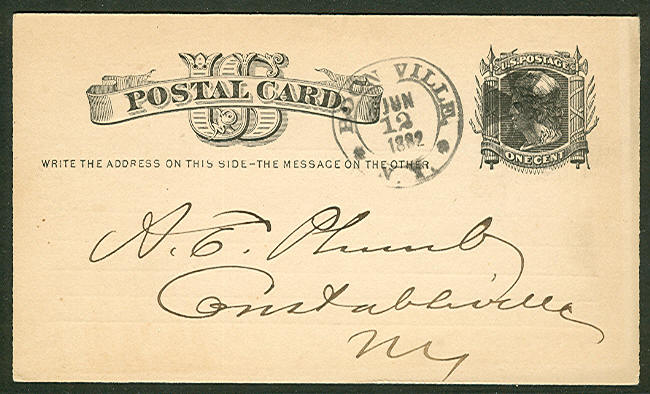 US
POSTAL CARD
WRITE THE ADDRESS ON THIS SIDE-THE MESSAGE ON THE OTHER
BOONVILLE
JUN
12
1882
N.Y.
U.S. POSTAGE
ONE CENT
A. E. Plumb
Constableville
NY